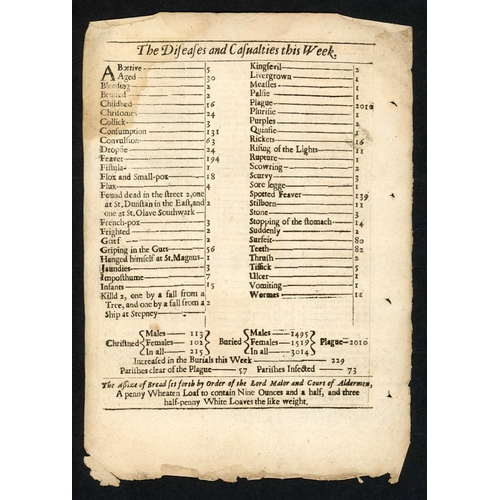 The Diſeaſes and Caſualties this Week.
ABortive 5
Aged 30
Bleeding 2
Bruiſed 2
Childbed 16
Chriſomes 24
Collick 3
Conſumption 131
Convulſion 63
Dropſie 24
Feaver 194
Fiſtula 1
Flox and Small-pox 18
Flux 4
Found dead in the ſtreet 2, one
at St. Dunſtan in the Eaſt, and 2
one at St. Olave Southwark
French-pox 3
Frighted 2
Grief 2
Griping in the Guts 56
Hanged himſelf at St. Magnus
Jaundies 3
Impoſthume 7
Infants 15
Killd 2, one by a fall from a
Tree, and one by a fall from a 2
Ship at Stepney
Kingſevil 2
Livergrown 1
Meaſles 1
Palſie 1
Plague 2010
Pluriſie 1
Purples 2
Quinſie 1
Rickets 16
Riſing of the Lights 11
Rupture 1
Scowring 2
Scurvy 3
Sore legge 1
Spotted Feaver 139
Stilborn 11
Stone 3
Stopping of the ſtomach 14
Suddenly 2
Surfeit 80
Teeth 82
Thruſh 2
Tiſſick 5
Ulcer 1
Vomiting 1
Wormes 11
Chriſtned Males 113 Females 102 In all 215 Buried Males 1495 Females 1519 In all 3014 Plague 2010
Increaſed in the Burials this Week 229
Pariſhes clear of the Plague 57 Pariſhes Infected 73
The Aſſize of Bread ſet forth by Order of the Lord Maior and Court of Aldermen,
A penny Wheaten Loaf to contain Nine Ounces and a half, and three
half-penny White Loaves the like weight.